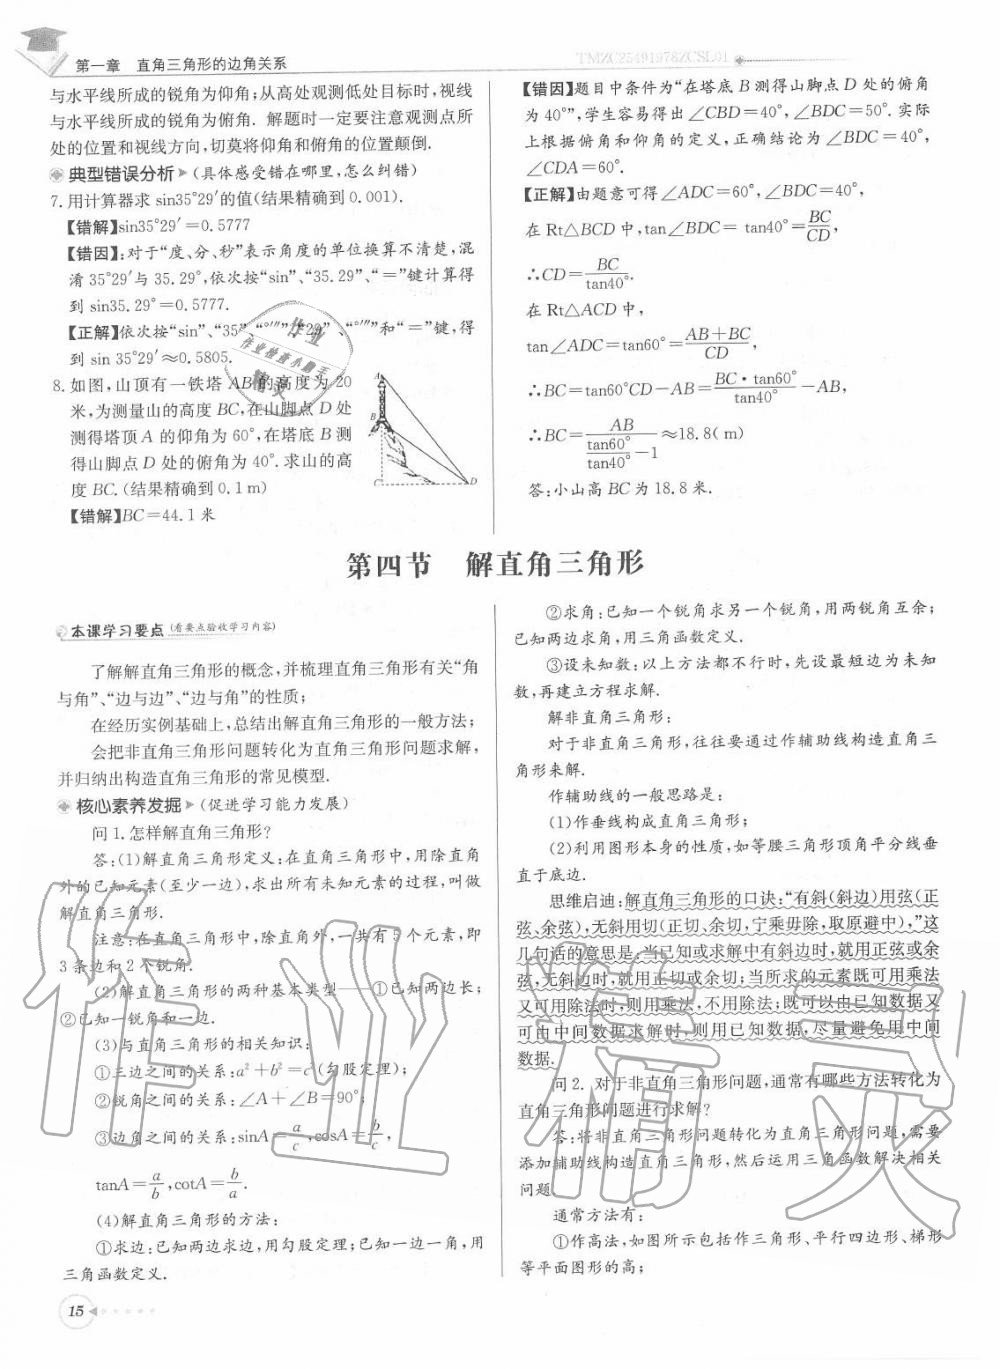 第一章 直角三角形的边角关系
TMZC25491978ZCSL01
与水平线所成的锐角为仰角;从高处观测低处目标时,视线
与水平线所成的锐角为俯角. 解题时一定要注意观测点所
处的位置和视线方向,切莫将仰角和俯角的位置颠倒.
典型错误分析 (具体感受错在哪里,怎么纠错)
7. 用计算器求 sin35°29′的值(结果精确到 0.001).
【错解】sin35°29′=0.5777
【错因】:对于“度、分、秒”表示角度的单位换算不清楚,混
淆 35°29′与 35.29°,依次按“sin”、“35.29”、“=”键计算得
到 sin35.29°=0.5777.
【正解】依次按“sin”、“35”、“°′″”、“29”、“°′″”和“=”键,得
到 sin 35°29′≈0.5805.
8. 如图,山顶有一铁塔 AB 的高度为 20
米,为测量山的高度 BC,在山脚点 D 处
测得塔顶 A 的仰角为 60°,在塔底 B 测
得山脚点 D 处的俯角为 40°.求山的高
度 BC.(结果精确到 0.1 m)
A
B
C
D
【错解】BC=44.1 米
【错因】题目中条件为“在塔底 B 测得山脚点 D 处的俯角
为 40°”,学生容易得出 ∠CBD=40°,∠BDC=50°. 实际
上根据俯角和仰角的定义,正确结论为 ∠BDC=40°,
∠CDA=60°.
【正解】由题意可得∠ADC=60°,∠BDC=40°,
在 Rt△BCD 中,tan∠BDC= tan40°=BC/CD,
∴CD=BC/tan40°.
在 Rt△ACD 中,
tan∠ADC=tan60°=(AB+BC)/CD,
∴BC=tan60°CD-AB=(BC·tan60°)/tan40°-AB,
∴BC=AB/(tan60°/tan40°-1)≈18.8( m)
答:小山高 BC 为 18.8 米.
第四节 解直角三角形
本课学习要点 (看要点验收学习内容)
了解解直角三角形的概念,并梳理直角三角形有关“角
与角”、“边与边”、“边与角”的性质;
在经历实例基础上,总结出解直角三角形的一般方法;
会把非直角三角形问题转化为直角三角形问题求解,
并归纳出构造直角三角形的常见模型.
核心素养发掘 (促进学习能力发展)
问 1.怎样解直角三角形?
答:(1)解直角三角形定义:在直角三角形中,用除直角
外的已知元素(至少一边),求出所有未知元素的过程,叫做
解直角三角形.
注意:在直角三角形中,除直角外,一共有 5 个元素,即
3 条边和 2 个锐角.
(2)解直角三角形的两种基本类型——①已知两边长;
②已知一锐角和一边.
(3)与直角三角形的相关知识:
①三边之间的关系:a²+b²=c²(勾股定理);
②锐角之间的关系:∠A+∠B=90°;
③边角之间的关系:sinA=a/c,cosA=b/c,
tanA=a/b,cotA=b/a.
(4)解直角三角形的方法:
①求边:已知两边求边,用勾股定理;已知一边一角,用
三角函数定义.
②求角:已知一个锐角求另一个锐角,用两锐角互余;
已知两边求角,用三角函数定义.
③设未知数:以上方法都不行时,先设最短边为未知
数,再建立方程求解.
解非直角三角形:
对于非直角三角形,往往要通过作辅助线构造直角三
角形来解.
作辅助线的一般思路是:
(1)作垂线构成直角三角形;
(2)利用图形本身的性质,如等腰三角形顶角平分线垂
直于底边.
思维启迪:解直角三角形的口诀:“有斜(斜边)用弦(正
弦、余弦),无斜用切(正切、余切,宁乘毋除,取原避中),”这
几句话的意思是:当已知或求解中有斜边时,就用正弦或余
弦,无斜边时,就用正切或余切;当所求的元素既可用乘法
又可用除法时,则用乘法,不用除法;既可以由已知数据又
可由中间数据求解时,则用已知数据,尽量避免用中间
数据.
问 2. 对于非直角三角形问题,通常有哪些方法转化为
直角三角形问题进行求解?
答:将非直角三角形问题转化为直角三角形问题,需要
添加辅助线构造直角三角形,然后运用三角函数解决相关
问题.
通常方法有:
①作高法,如图所示包括作三角形、平行四边形、梯形
等平面图形的高;
15
作业精灵